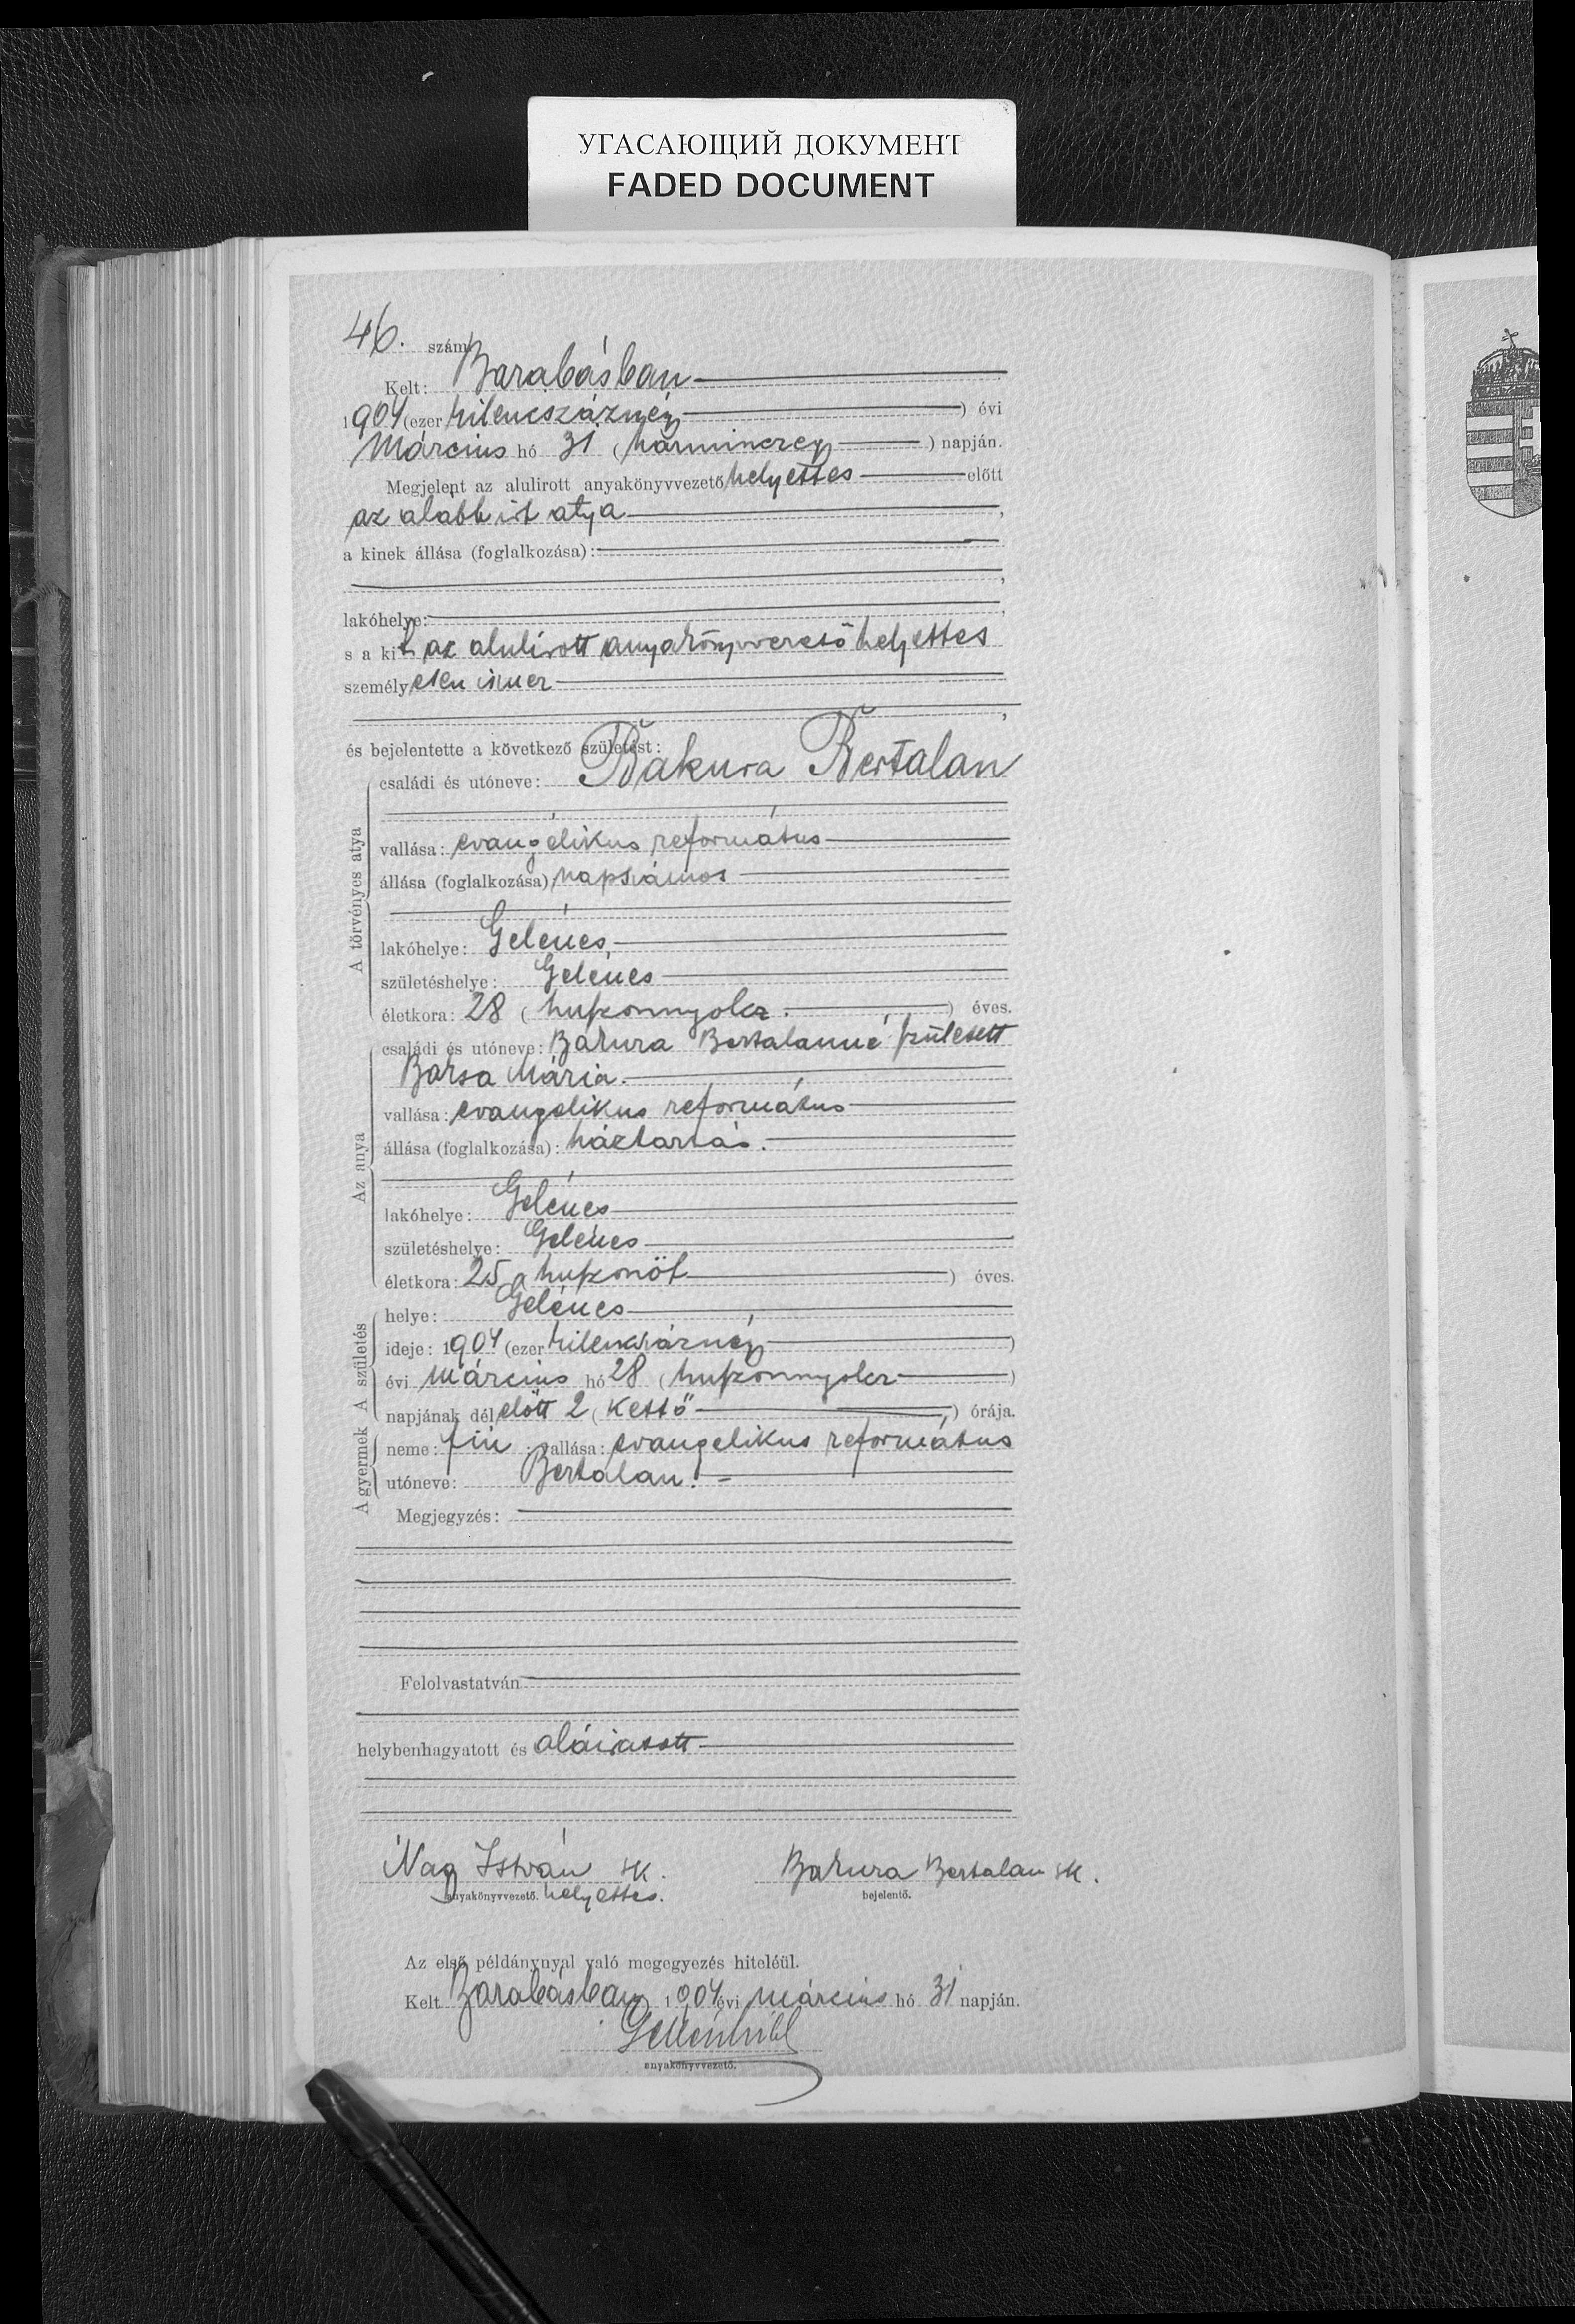 УГАСАЮЩИЙ ДОКУМЕНТ
FADED DOCUMENT
46. szám
Kelt: Barabásban
1904 (ezer kilencszáznégy) évi
Március hó 31 (harminczegy) napján.
Megjelent az alulirott anyakönyvvezető helyettes előtt
az alább irt atya,
a kinek állása (foglalkozása):
,
lakóhelye: ,
s a kit az alulirott anyakönyvvezető helyettes
személyesen ismer
,
és bejelentette a következő születést:
A törvényes atya
családi és utóneve: Bakura Bertalan
vallása: evangélikus református
állása (foglalkozása): napszámos
lakóhelye: Gelénes,
születéshelye: Gelénes
életkora: 28 (huszonnyolcz.) éves.
Az anya
családi és utóneve: Bakura Bertalanné született
Barsa Mária.
vallása: evangelikus református
állása (foglalkozása): háztartás.
lakóhelye: Gelénes
születéshelye: Gelénes
életkora: 25 (huszonöt) éves.
A születés
helye: Gelénes
ideje: 1904 (ezer kilenczszáznégy)
évi március hó 28 (huszonnyolcz)
napjának dél előtt 2 (kettő) órája.
A gyermek
neme: fiú; vallása: evangelikus református
utóneve: Bertalan.
Megjegyzés:
Felolvastatván
helybenhagyatott és aláiratott
Nagy István sk. Bakura Bertalan sk.
anyakönyvvezető. helyettes. bejelentő.
Az első példánynyal való megegyezés hiteléül.
Kelt Barabásban 1904 évi március hó 31 napján.
anyakönyvvezető.